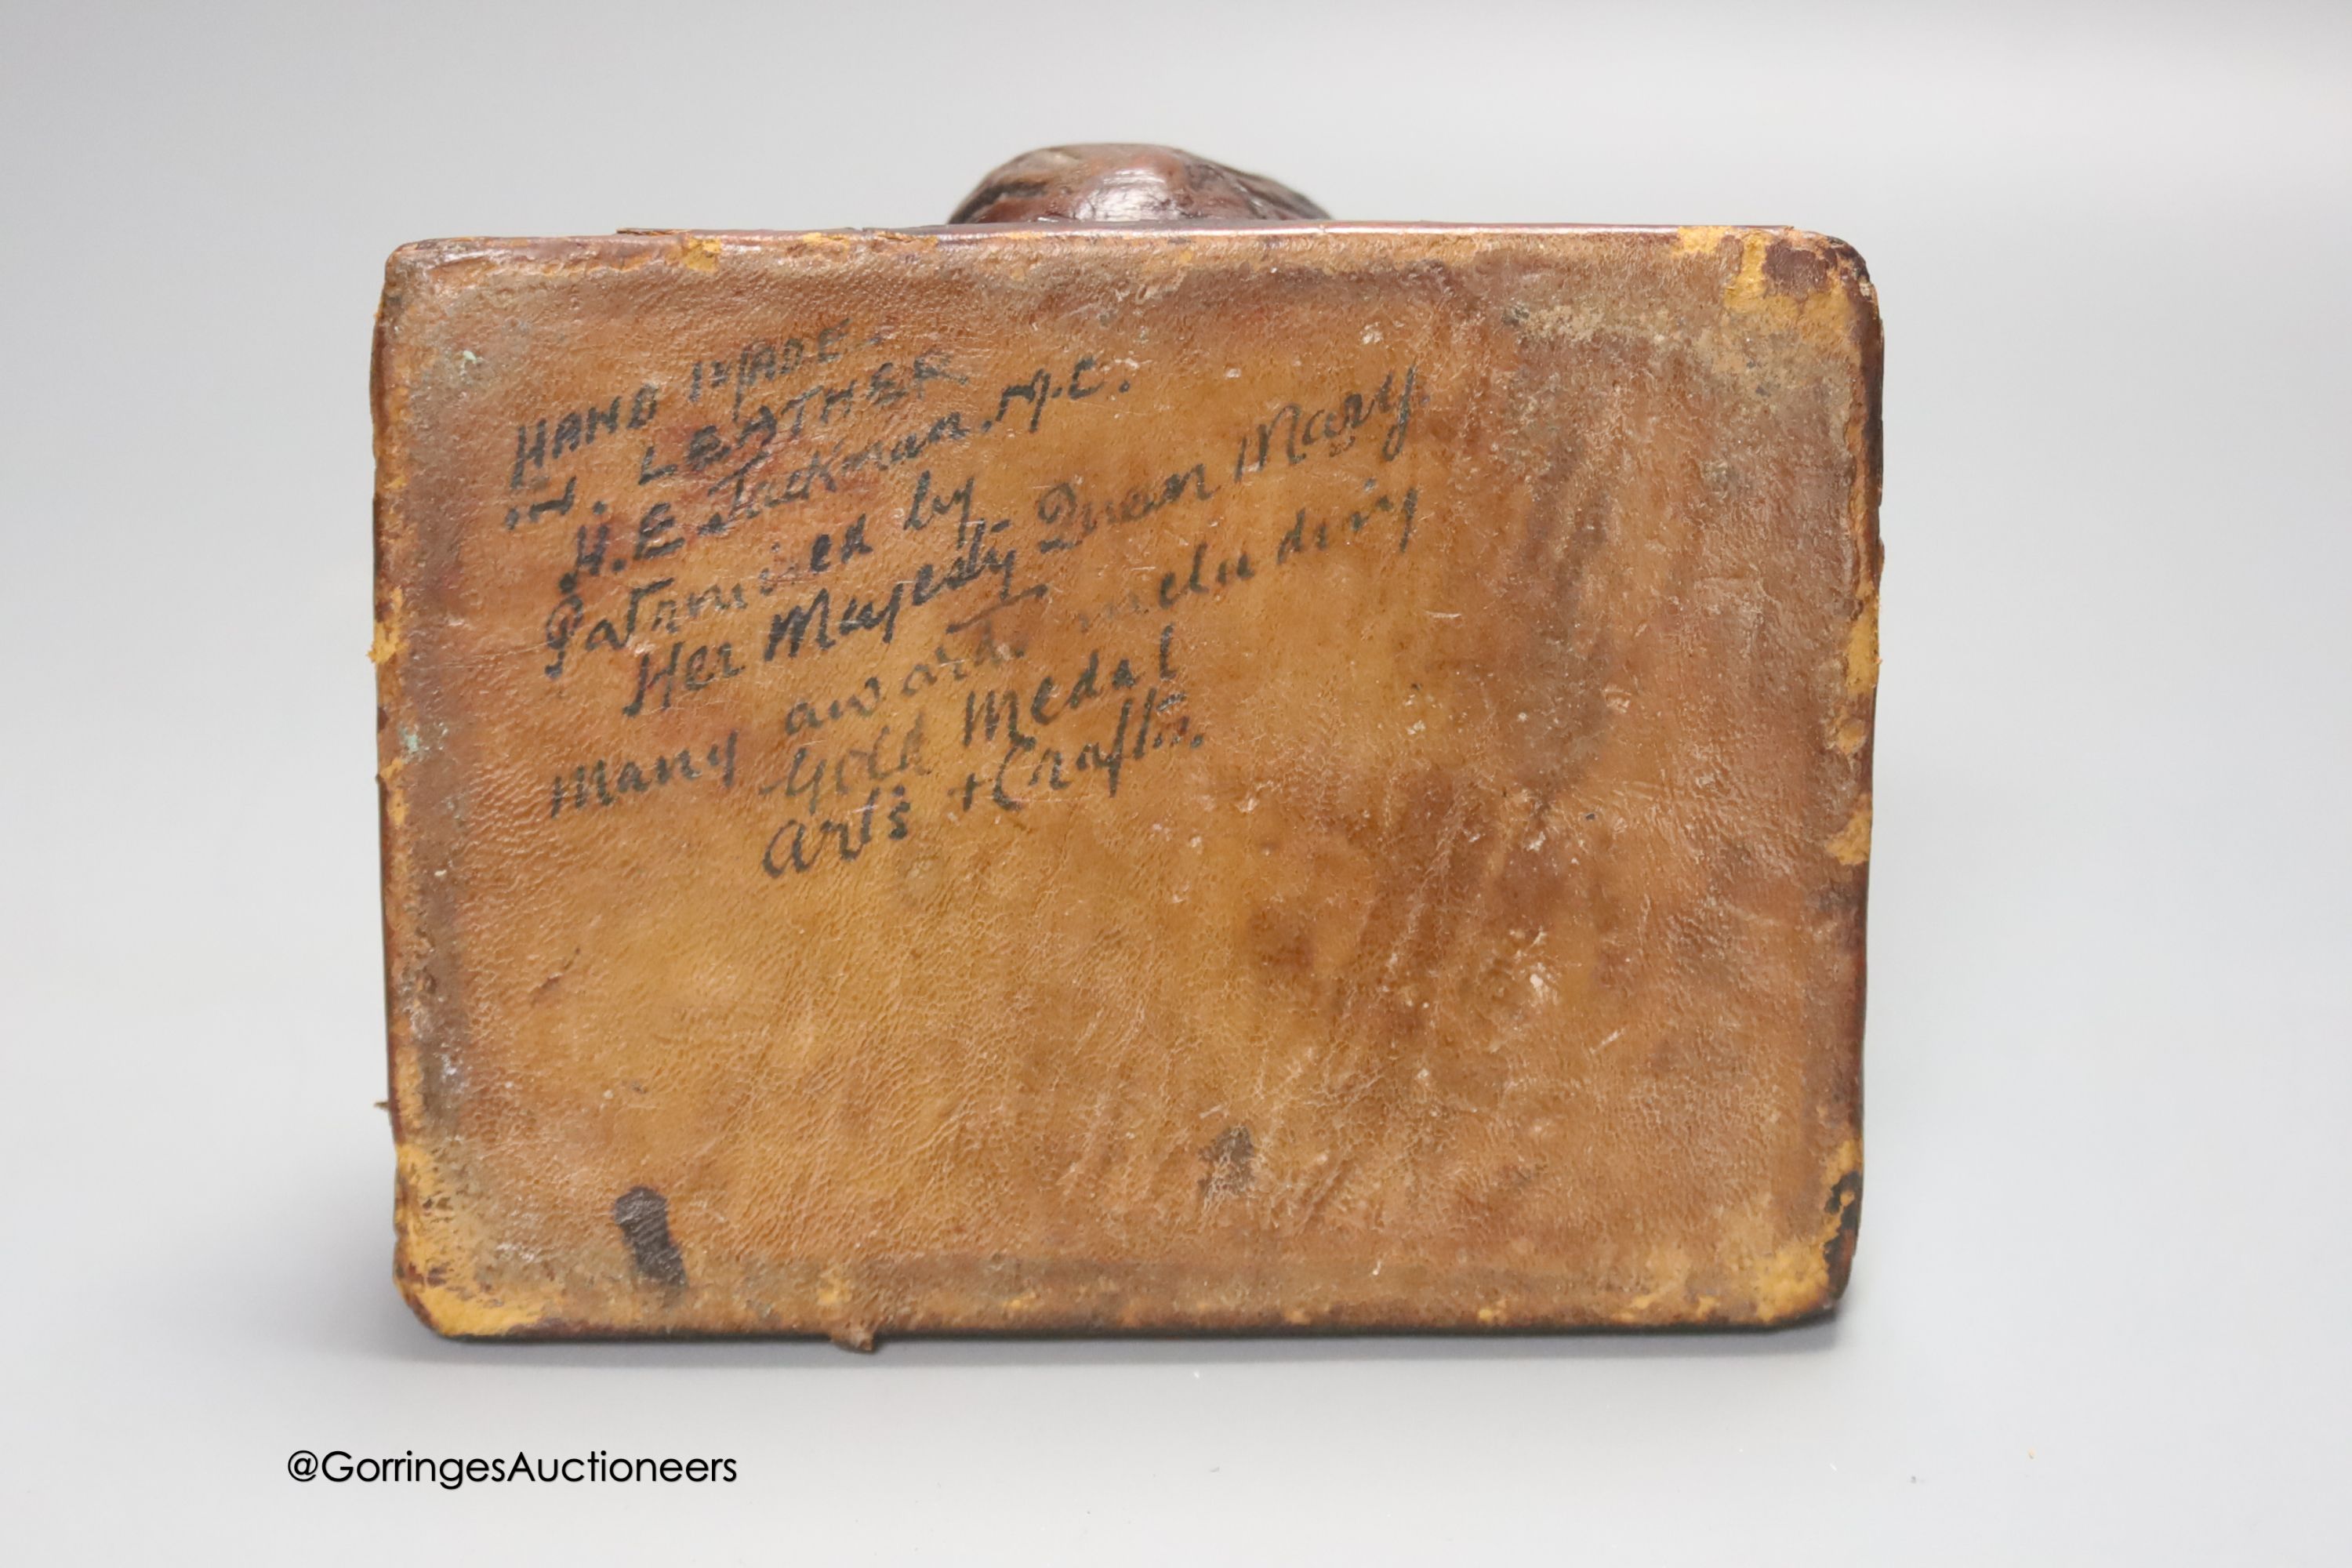 HAND MADE
IN. LEATHER
H.E Jackman. M.C.
Patronised by
Her Majesty Queen Mary.
Many awards including
Gold Medal
Arts + Crafts.
@GorringesAuctioneers